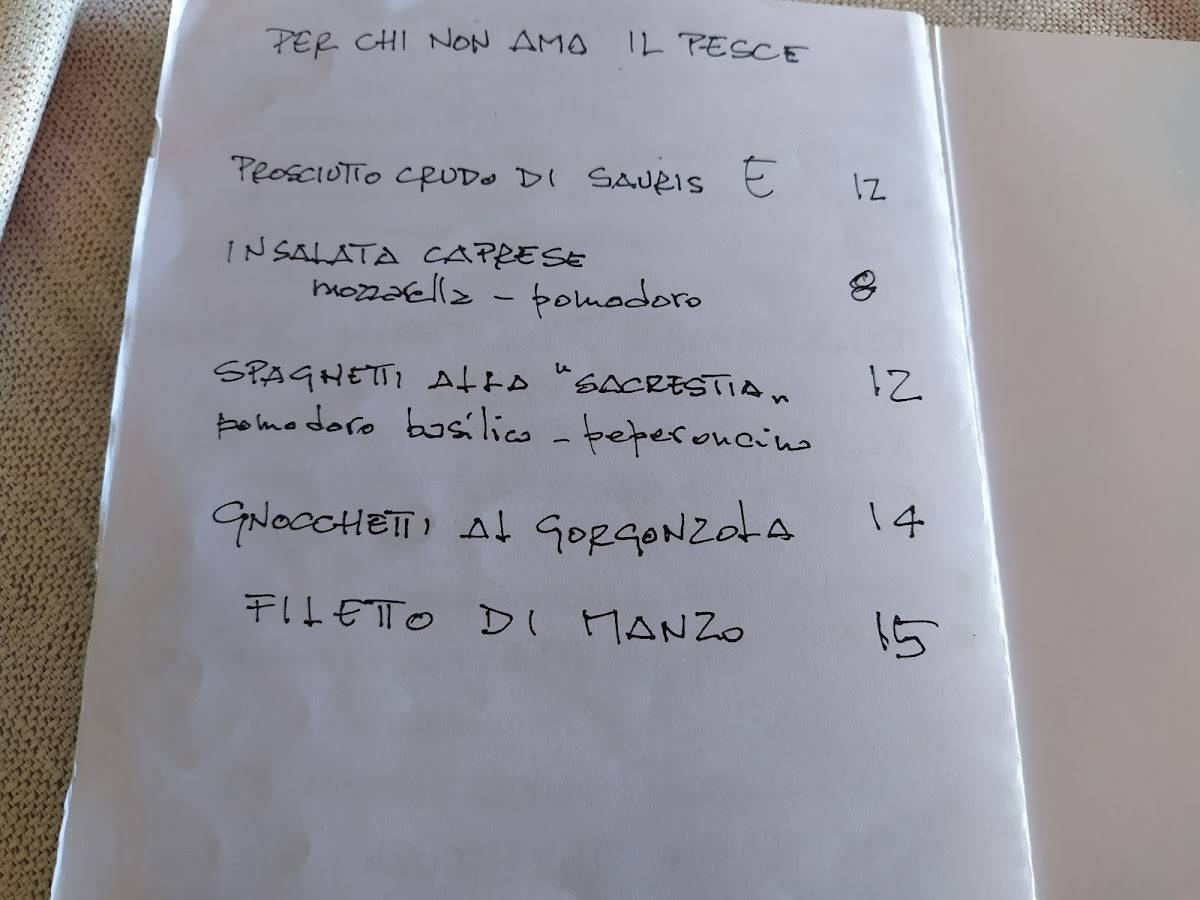 PER CHI NON AMA IL PESCE
PROSCIUTTO CRUDO DI SAURIS E 12
INSALATA CAPRESE
mozzarella - pomodoro 8
SPAGHETTI ALLA "SACRESTIA" 12
pomodoro basilico - peperoncino
GNOCCHETTI AL GORGONZOLA 14
FILETTO DI MANZO 15